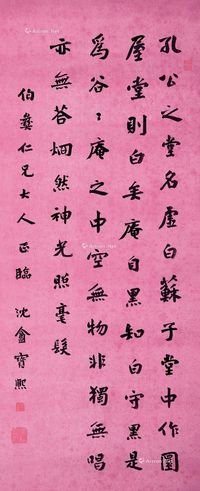 孔公之堂名虛白蘇子堂中作圜
屋堂則白矣庵自黑知白守黑是
爲谷〻庵之中空無物非獨無唱
亦無答烱然神光照毫髮
伯彝仁兄大人正臨 沈盦寶熙